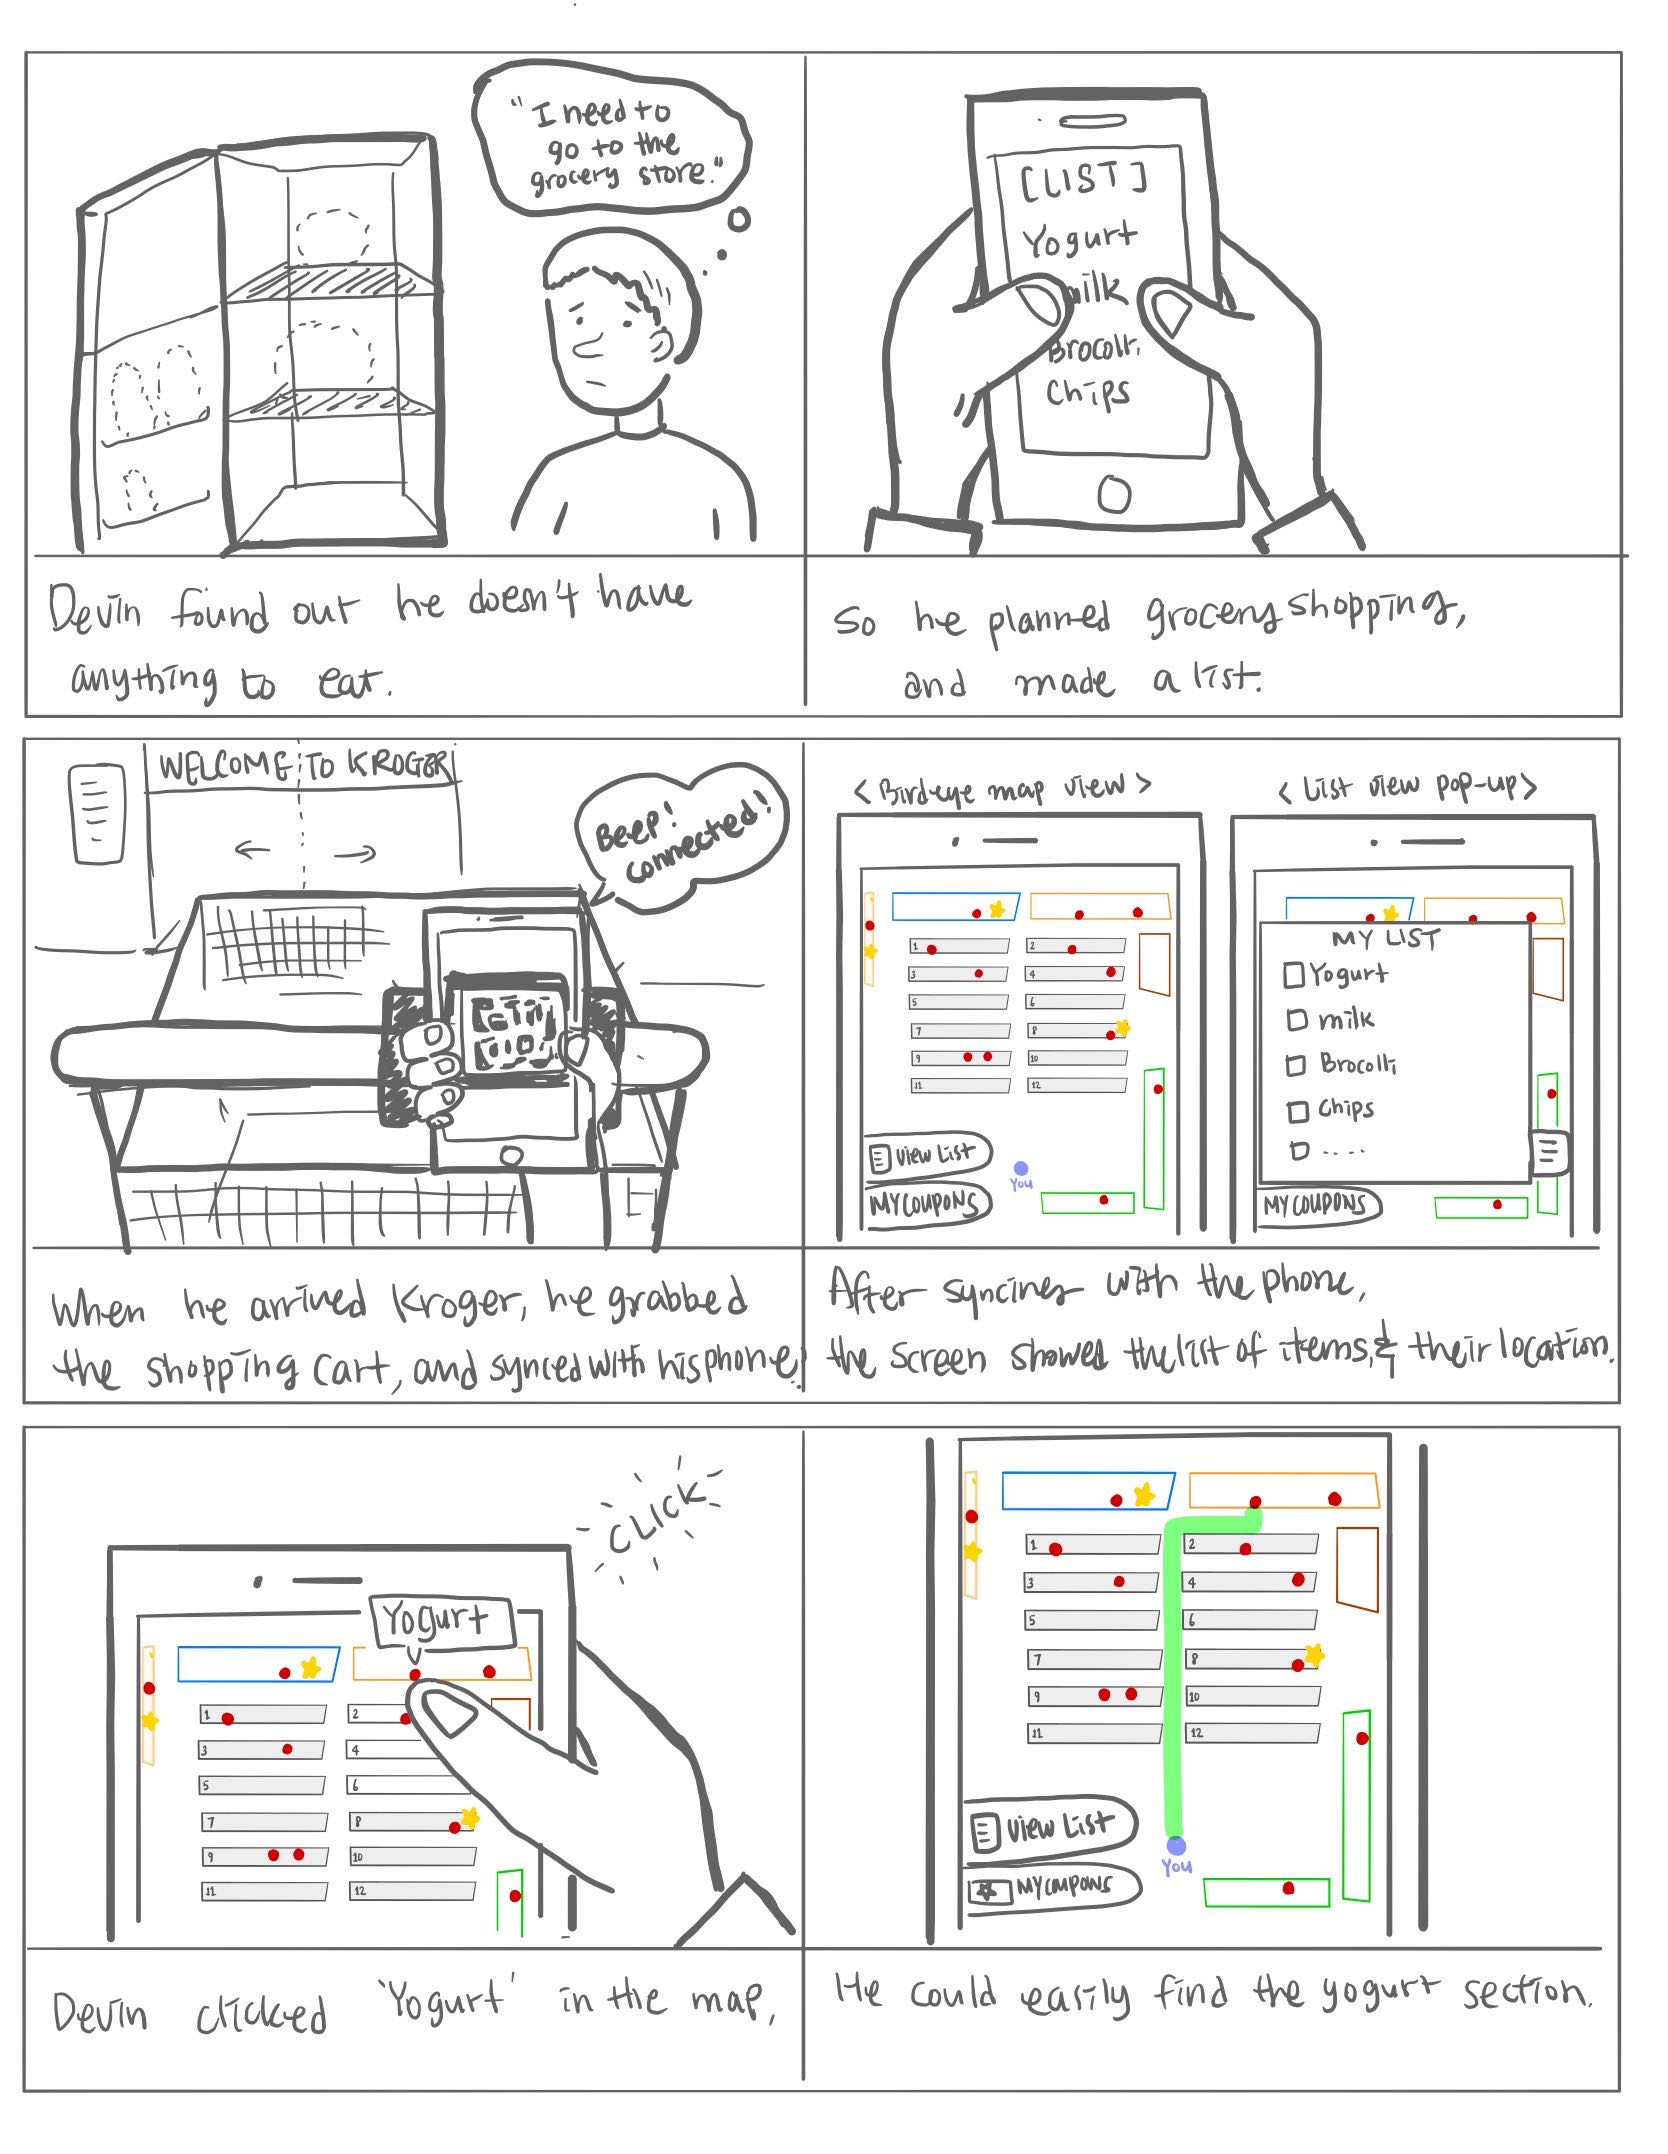 "I need to
go to the
grocery store."
Devin found out he doesn't have
anything to eat.
[LIST]
Yogurt
milk
Brocolli
Chips
So he planned grocery shopping,
and made a list.
WELCOME TO KROGER
Beep!
connected!
When he arrived Kroger, he grabbed
the shopping cart, and synced with his phone.
< Birdeye map view >
1 2
3 4
5 6
7 8
9 10
11 12
View List
You
MY COUPONS
< List view pop-up >
MY LIST
Yogurt
milk
Brocolli
Chips
.....
MY COUPONS
After syncing with the phone,
the screen showed the list of items, & their location.
CLICK
Yogurt
1 2
3 4
5 6
7 8
9 10
11 12
Devin clicked 'Yogurt' in the map.
1 2
3 4
5 6
7 8
9 10
11 12
View List
You
MY COUPONS
He could easily find the yogurt section.